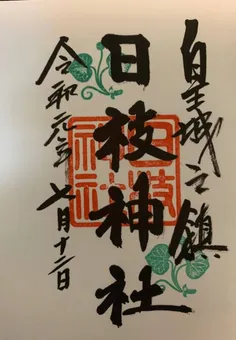 皇城之鎮
日枝神社
令和元年七月十二日
日枝神社